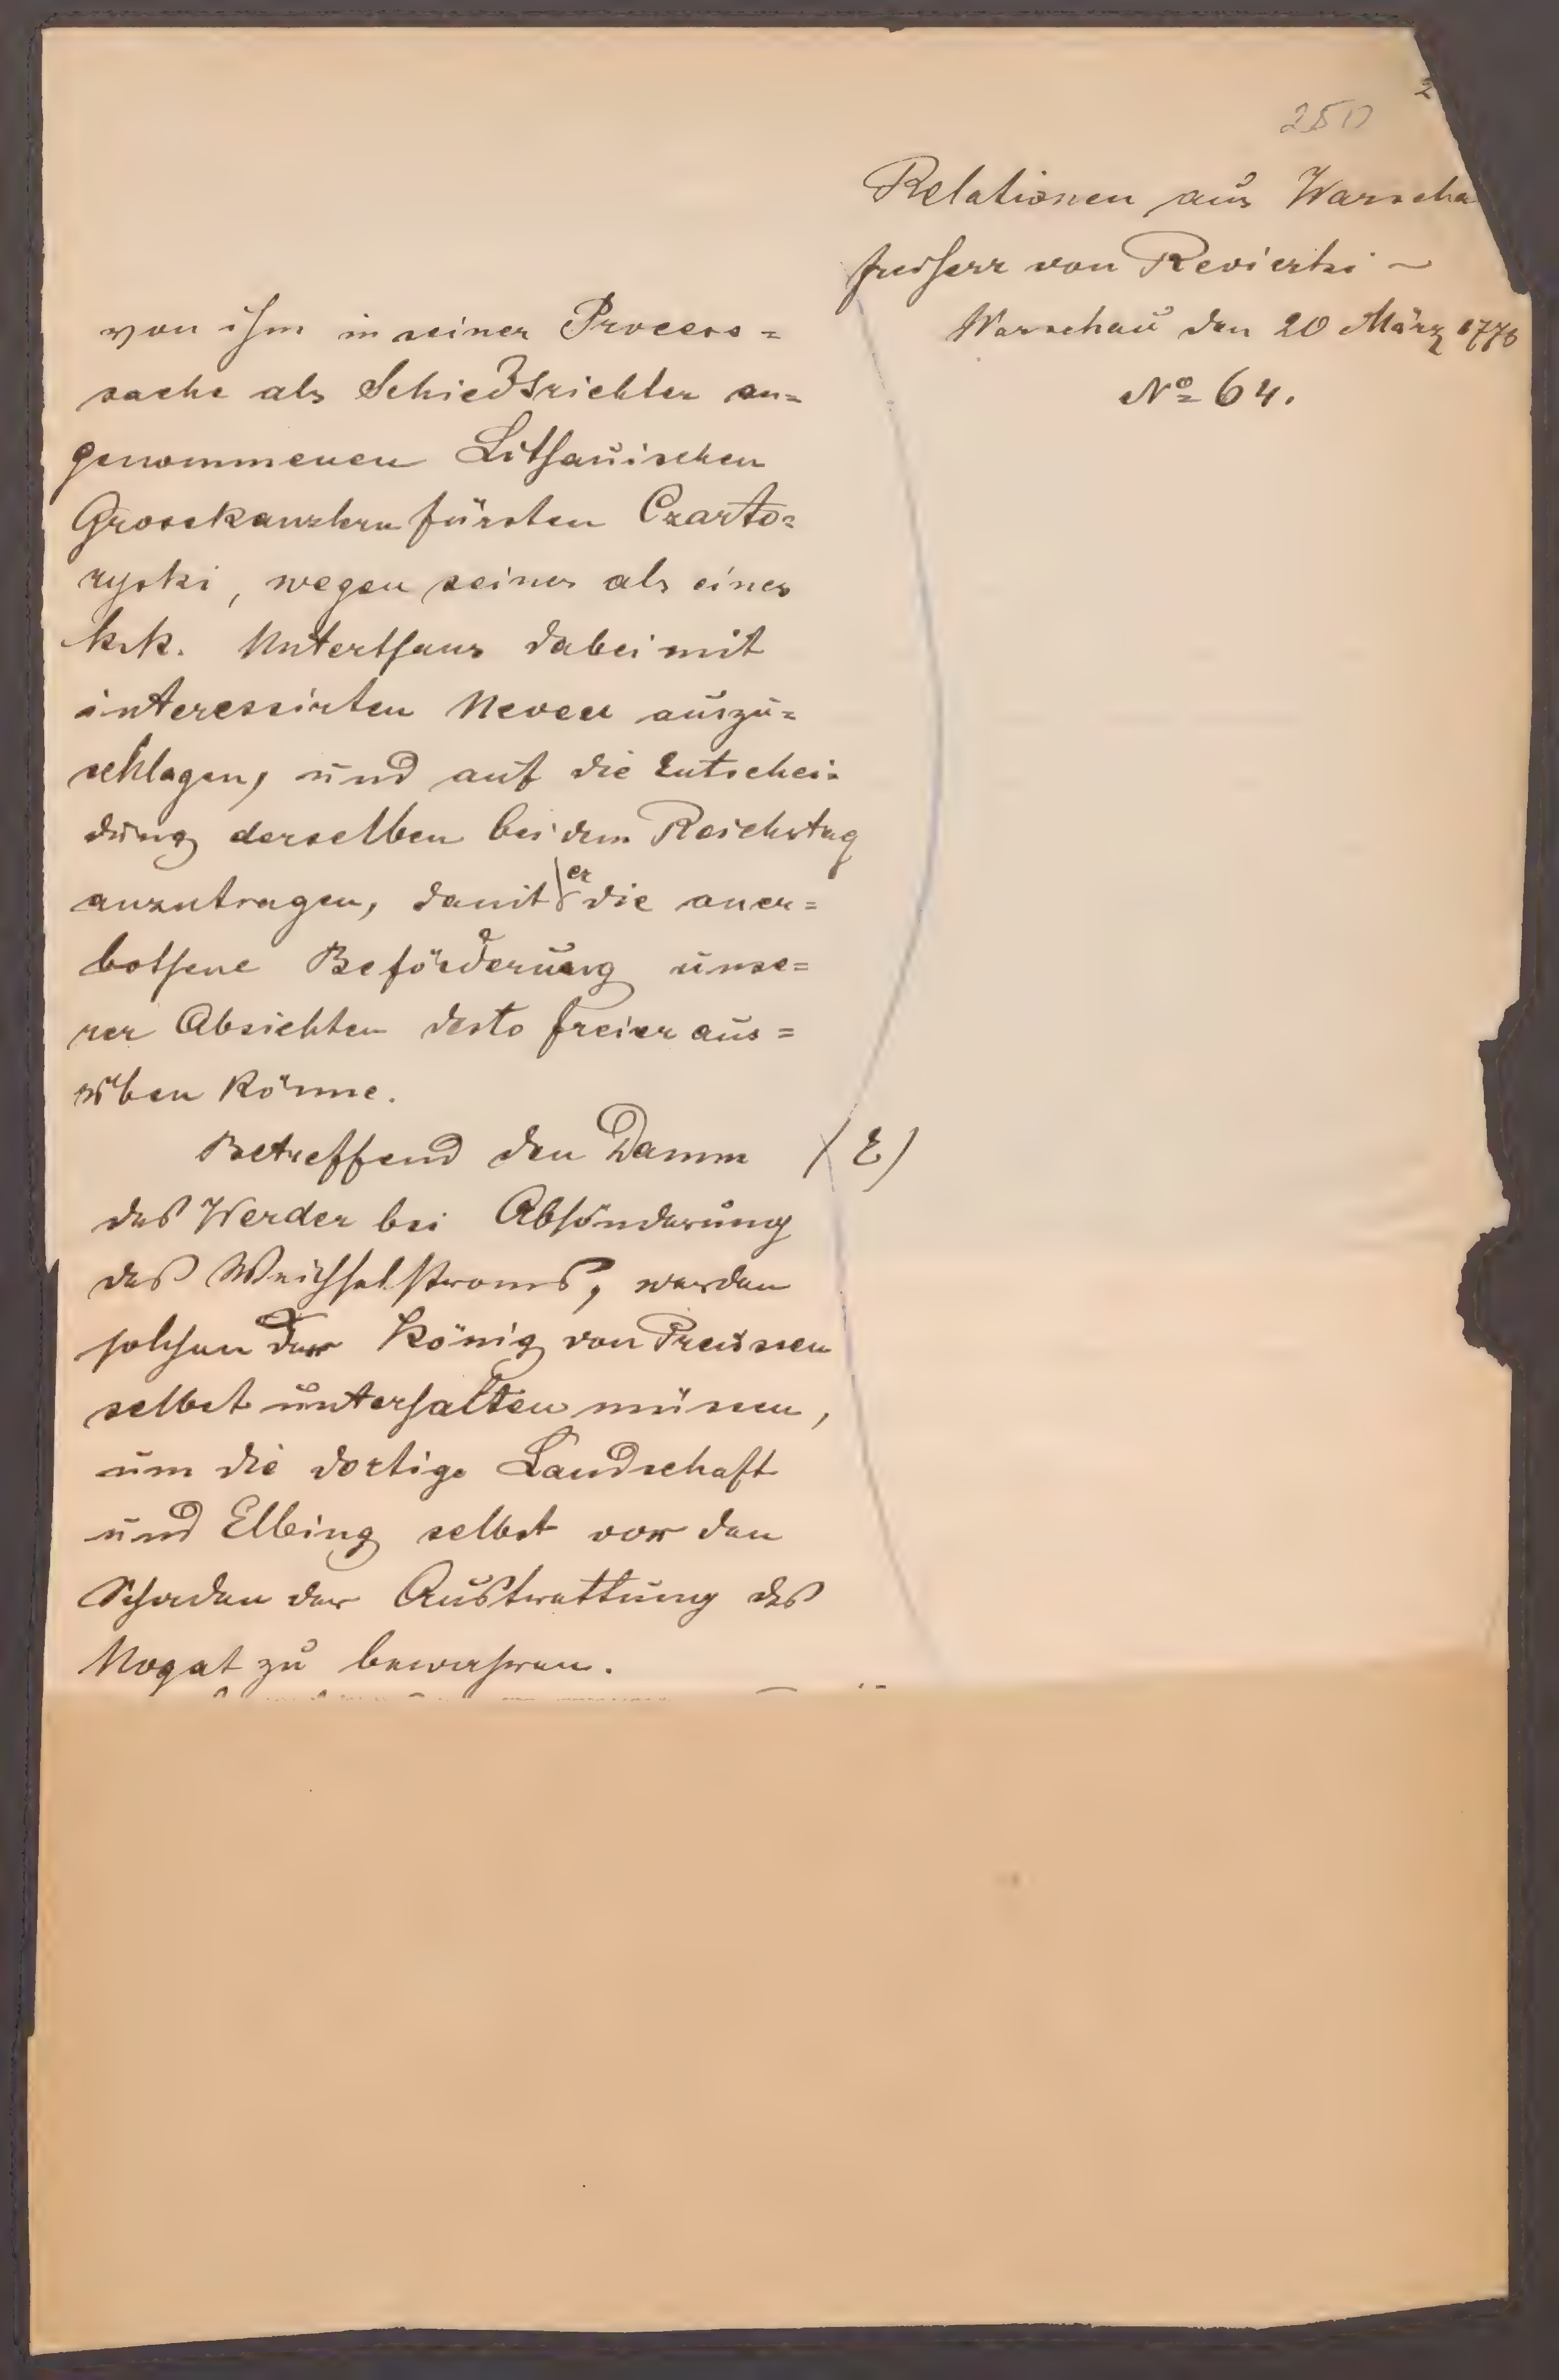 250
Relationen aus Warscha
freiherr von Revierki –
Warschau den 20 März 1776
№ 64.
von ihm in seiner Process=
sache als Schiedsrichter an=
genommenen Lithauischen
Grosskanzlern fürsten Czarto=
ryski, wegen seines als eines
k.k. Unterthans dabei mit
interessirten Neveu auszu=
schlagen, und auf die Entschei=
dung derselben bei dem Reichstag
anzutragen, damit er die aner=
bothene Beförderung unse=
rer Absichten desto freier aus=
üben könne.
Betreffend den Damm (E)
des Werder bei Absönderung
des Weichselstroms, werden
solchen der König von Preussen
selbst unterhalten müssen,
um die dortige Landschaft
und Elbing selbst vor den
Schaden der Austrettung des
Nogat zu bewahren.